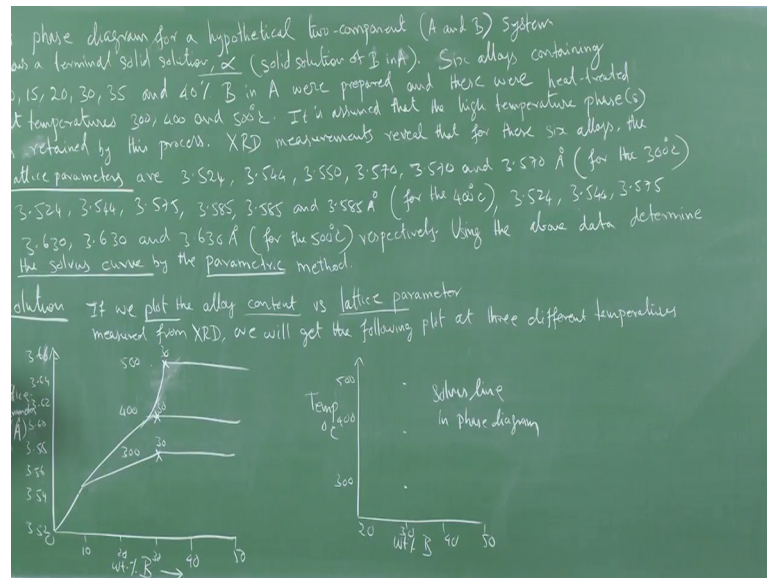 phase diagram for a hypothetical two-component (A and B) System
a terminal solid solution, α (solid solution of B in A). Six alloys containing
, 15, 20, 30, 35 and 40% B in A were prepared and these were heat-treated
t temperatures 300, 400 and 500°C. It is assumed that the high temperature phase(s)
retained by this process. XRD measurements reveal that for these six alloys, the
attice parameters are 3.524, 3.544, 3.550, 3.570, 3.570 and 3.570 Å (for the 300°C)
3.524, 3.544, 3.575, 3.585, 3.585 and 3.585 Å (for the 400°C), 3.524, 3.544, 3.575
3.630, 3.630 and 3.630 Å (for the 500°C) respectively. Using the above data determine
the solvus curve by the parametric method.
olution If we plot the alloy content vs lattice parameter
measured from XRD, we will get the following plot at three different temperatures
3.64
3.62
3.60
3.56
3.54
3.52
Å)
500
30
400
300
30
0
10
20
30
40
50
wt.% B →
Temp
°C
500
400
300
Solvus line
in phase diagram
20
30
40
50
wt% B